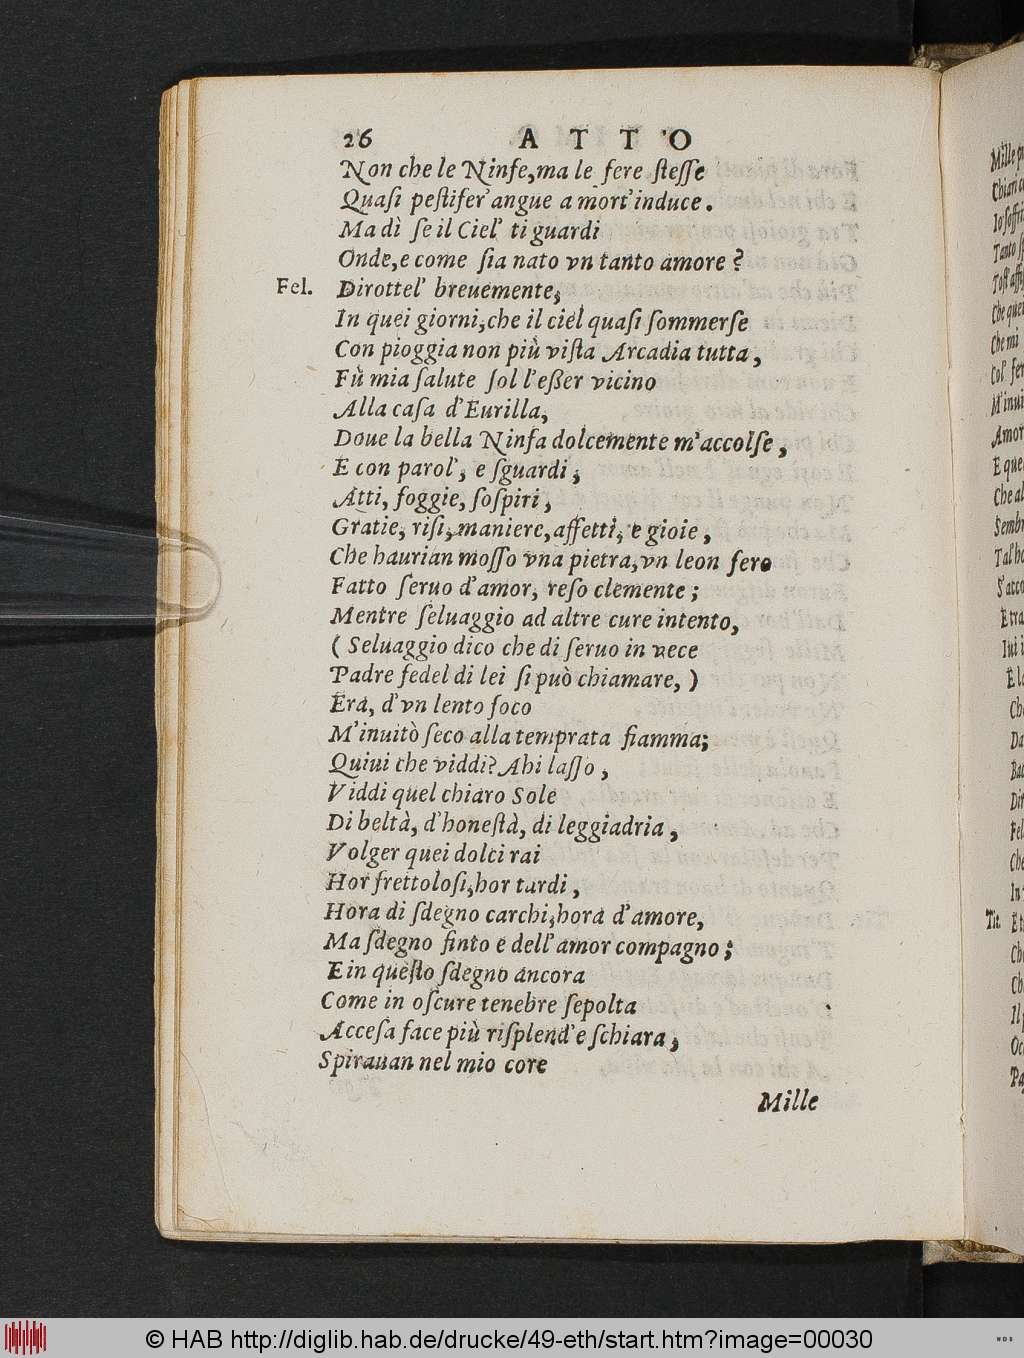 26 ATTO
Non che le Ninfe, ma le fere ſteſſe
Quaſi peſtifer' angue a mort' induce.
Ma dì ſe il Ciel' ti guardi
Onde, e come ſia nato vn tanto amore?
Fel. Dirottel' breuemente,
In quei giorni, che il ciel quaſi ſommerſe
Con pioggia non più viſta Arcadia tutta,
Fù mia ſalute ſol l'eßer vicino
Alla caſa d'Eurilla,
Doue la bella Ninfa dolcemente m'accolſe,
E con parol', e ſguardi,
Atti, foggie, ſoſpiri,
Gratie, riſi, maniere, affetti, e gioie,
Che haurian moſſo vna pietra, vn leon fero
Fatto ſeruo d'amor, reſo clemente;
Mentre ſeluaggio ad altre cure intento,
(Seluaggio dico che di ſeruo in vece
Padre fedel di lei ſi può chiamare,)
Era, d'vn lento foco
M'inuitò ſeco alla temprata fiamma;
Quiui che viddi? Ahi laſſo,
Viddi quel chiaro Sole
Di beltà, d'honeſtà, di leggiadria,
Volger quei dolci rai
Hor frettoloſi, hor tardi,
Hora di ſdegno carchi, hora d'amore,
Ma ſdegno finto e dell'amor compagno;
E in queſto ſdegno ancora
Come in oſcure tenebre ſepolta
Acceſa face più riſplend' e ſchiara,
Spirauan nel mio core
Mille
Chiari
Io ſoffri
Tanto
Che quei
Che mi
Col' fer
M'inui
Amor
E que
Che al
Sembr
Tal'ho
S'acco
E tra
Che
Da
Fel
Che
In
Tit.
Che
Ch
Il
© HAB http://diglib.hab.de/drucke/49-eth/start.htm?image=00030